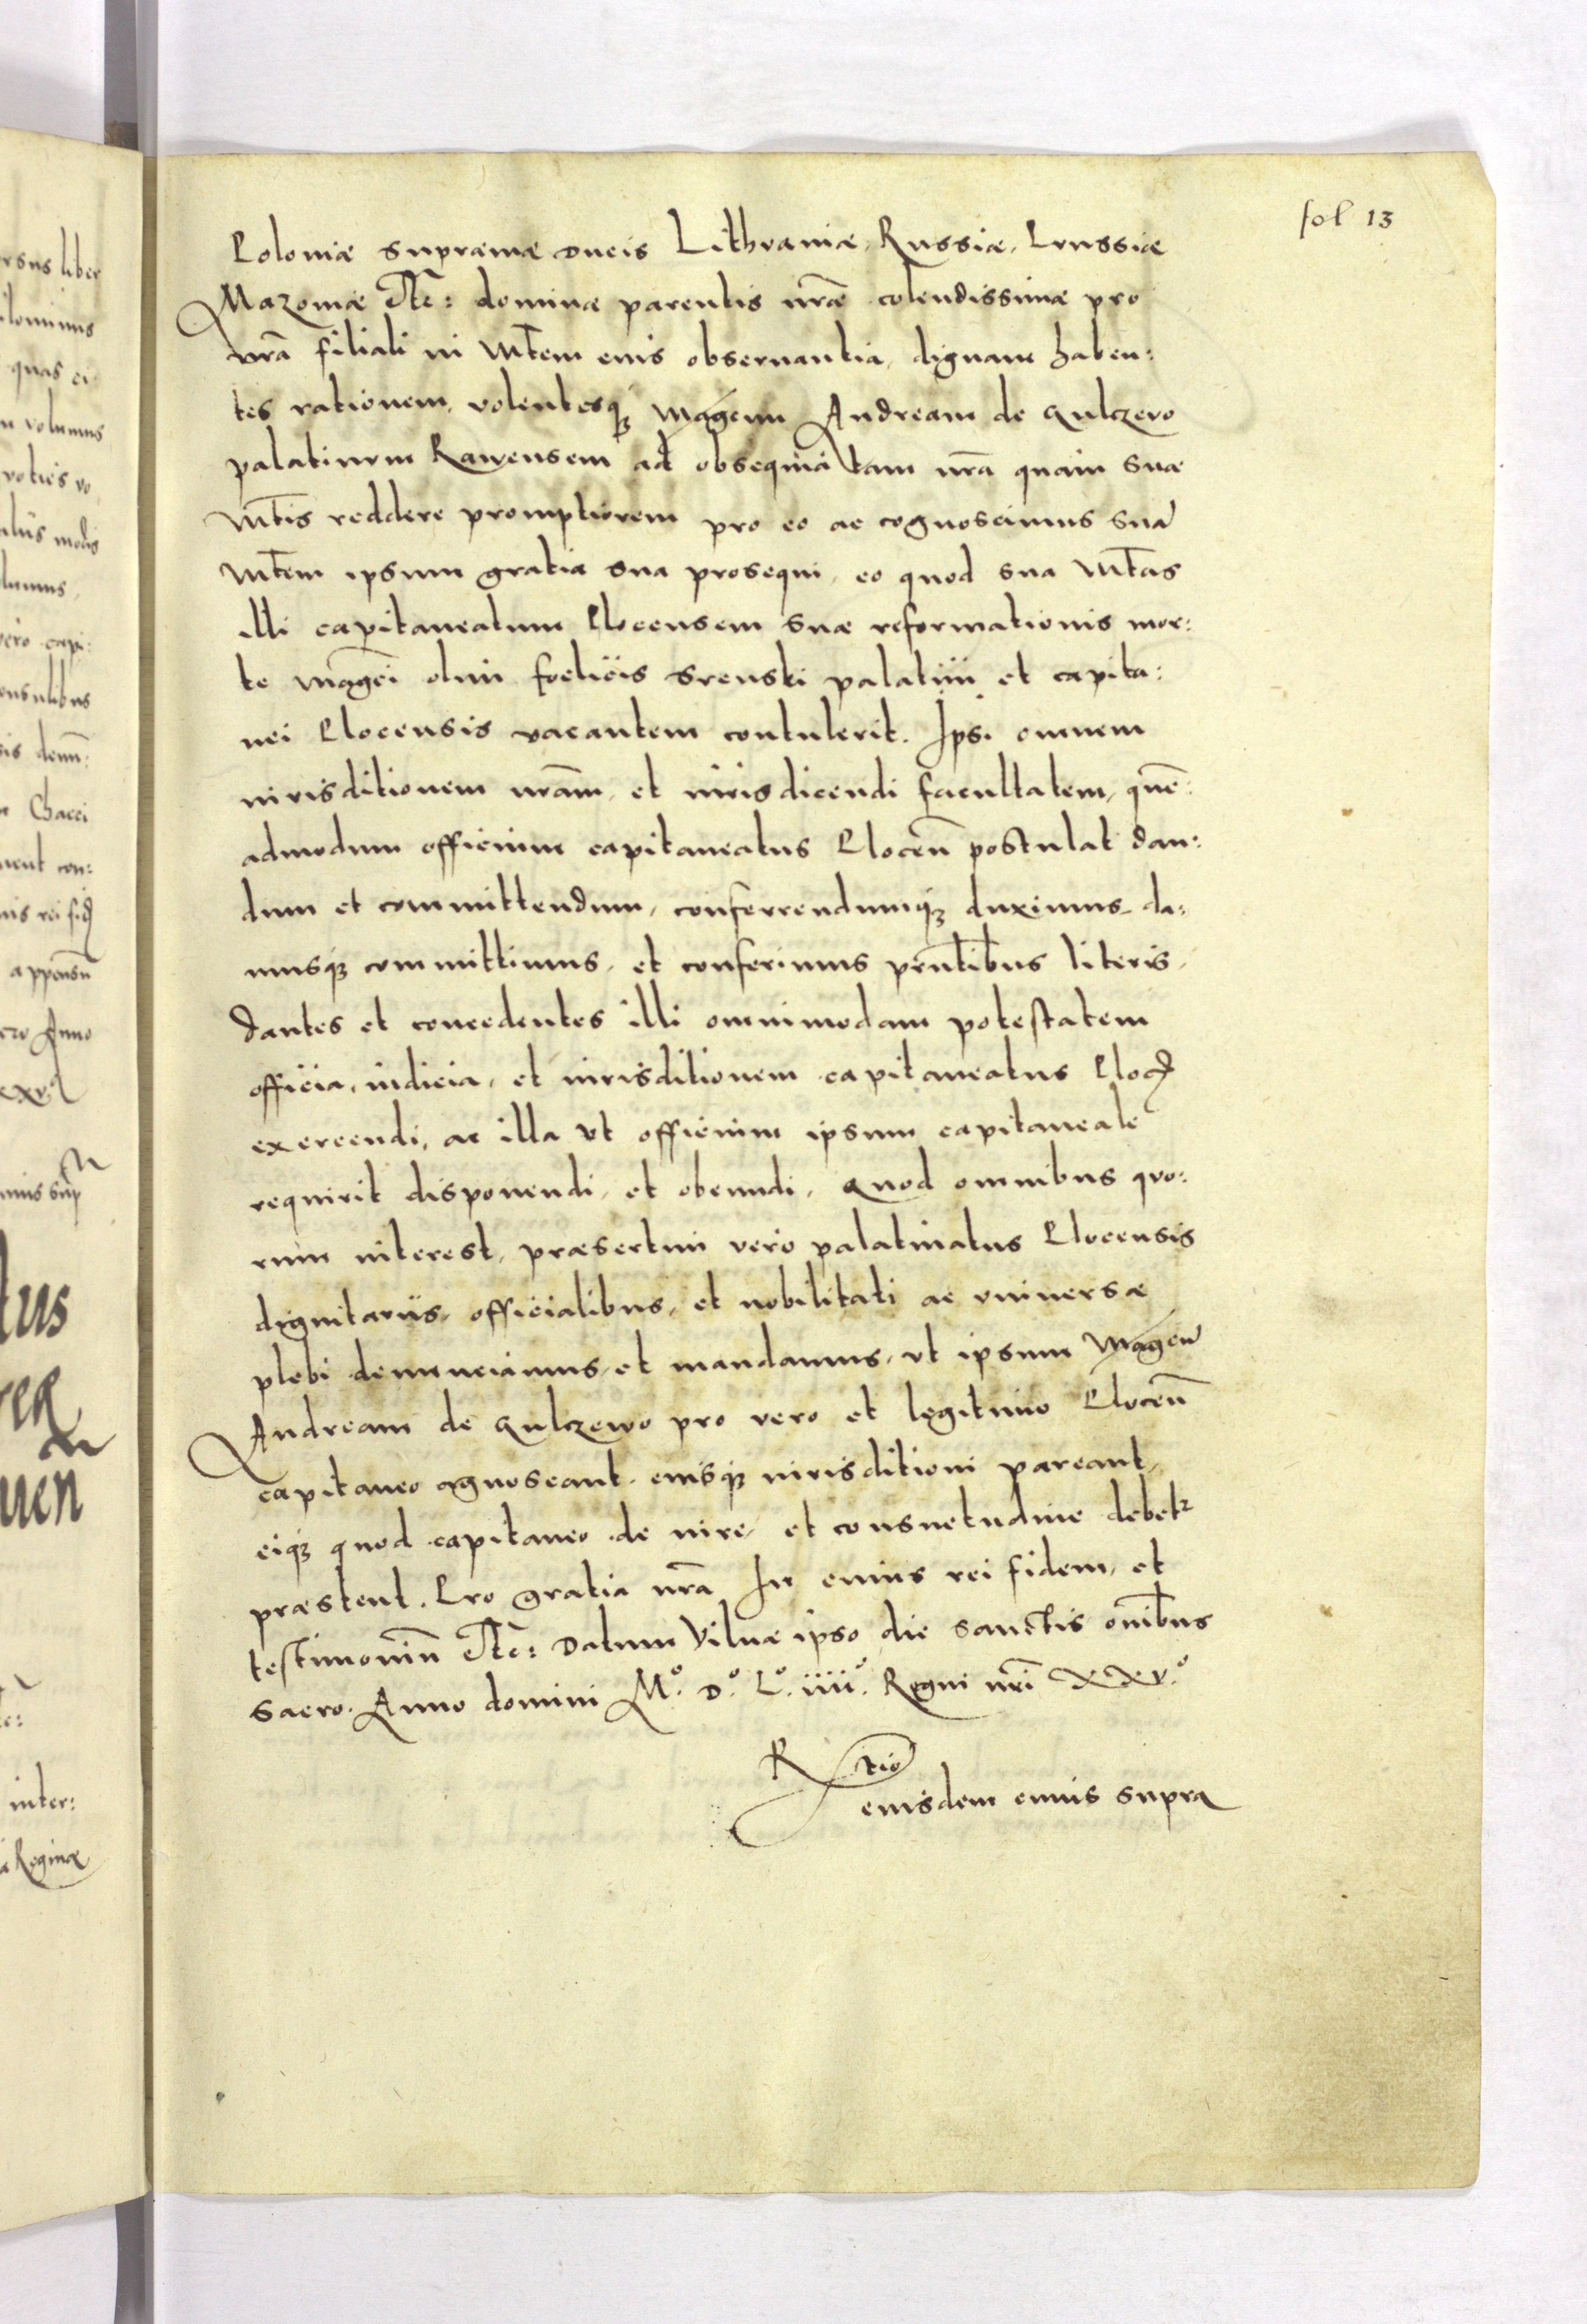 fol 13
Poloniæ supremæ ducis Lithvaniæ, Russiæ, Prussiæ
Mazoviæ etc: dominæ parentis nr̃æ colendissimæ pro
nr̃a filiali in Mt̃em eius obseruantia, dignam haben:
tes rationem, volentesq3 Mag̃cum Andream de Sulczevo
palatinum Rawensem ad obsequia tam nr̃a quam suæ
Mt̃is reddere promptiorem pro eo ac cognoscimus suã
Mt̃em ipsum gratia sua prosequi, eo quod sua Mt̃as
illi capitaneatum Plocensem suæ reformationis mor:
te mag̃ci olim foelicis Srenski palatini et capita:
nei Plocensis vacantem contulerit. Ipsi omnem
iurisditionem nr̃am, et iuris dicendi facultatem, quẽ:
admodum officium capitaneatus Plocen̄ postulat dan:
dum et committendum, conferrendumq3 duximus da:
musq3 committimus, et conferimus pr̃ntibus literis,
dantes et concedentes illi omnimodam potestatem
officia, iudicia, et iurisditionem capitaneatus Ploc̃
exercendi, ac illa vt officium ipsum capitaneale
requirit disponendi, et obeundi, Quod omnibus quo:
rum interest, præsertim vero palatinatus Plocensis
dignitariis, officialibus, et nobilitati ac vniversæ
plebi denunciamus, et mandamus, vt ipsum Mag̃cũ
Andream de Sulczewo pro vero et legitimo Plocen̄
capitaneo agnoscant, eiusq3 iurisditioni pareant,
eiq3 quod capitaneo de iure, et consuetudine debetr
præstent. Pro gratia nr̃a In cuius rei fidem, et
testimoniũ etc: Datum Vilnæ ipso die sanctis om̃ibus
sacro. Anno domini M°. D°. L°. iiii°. Regni nr̃i XXV°.
R tio
eiusdem cuius supra